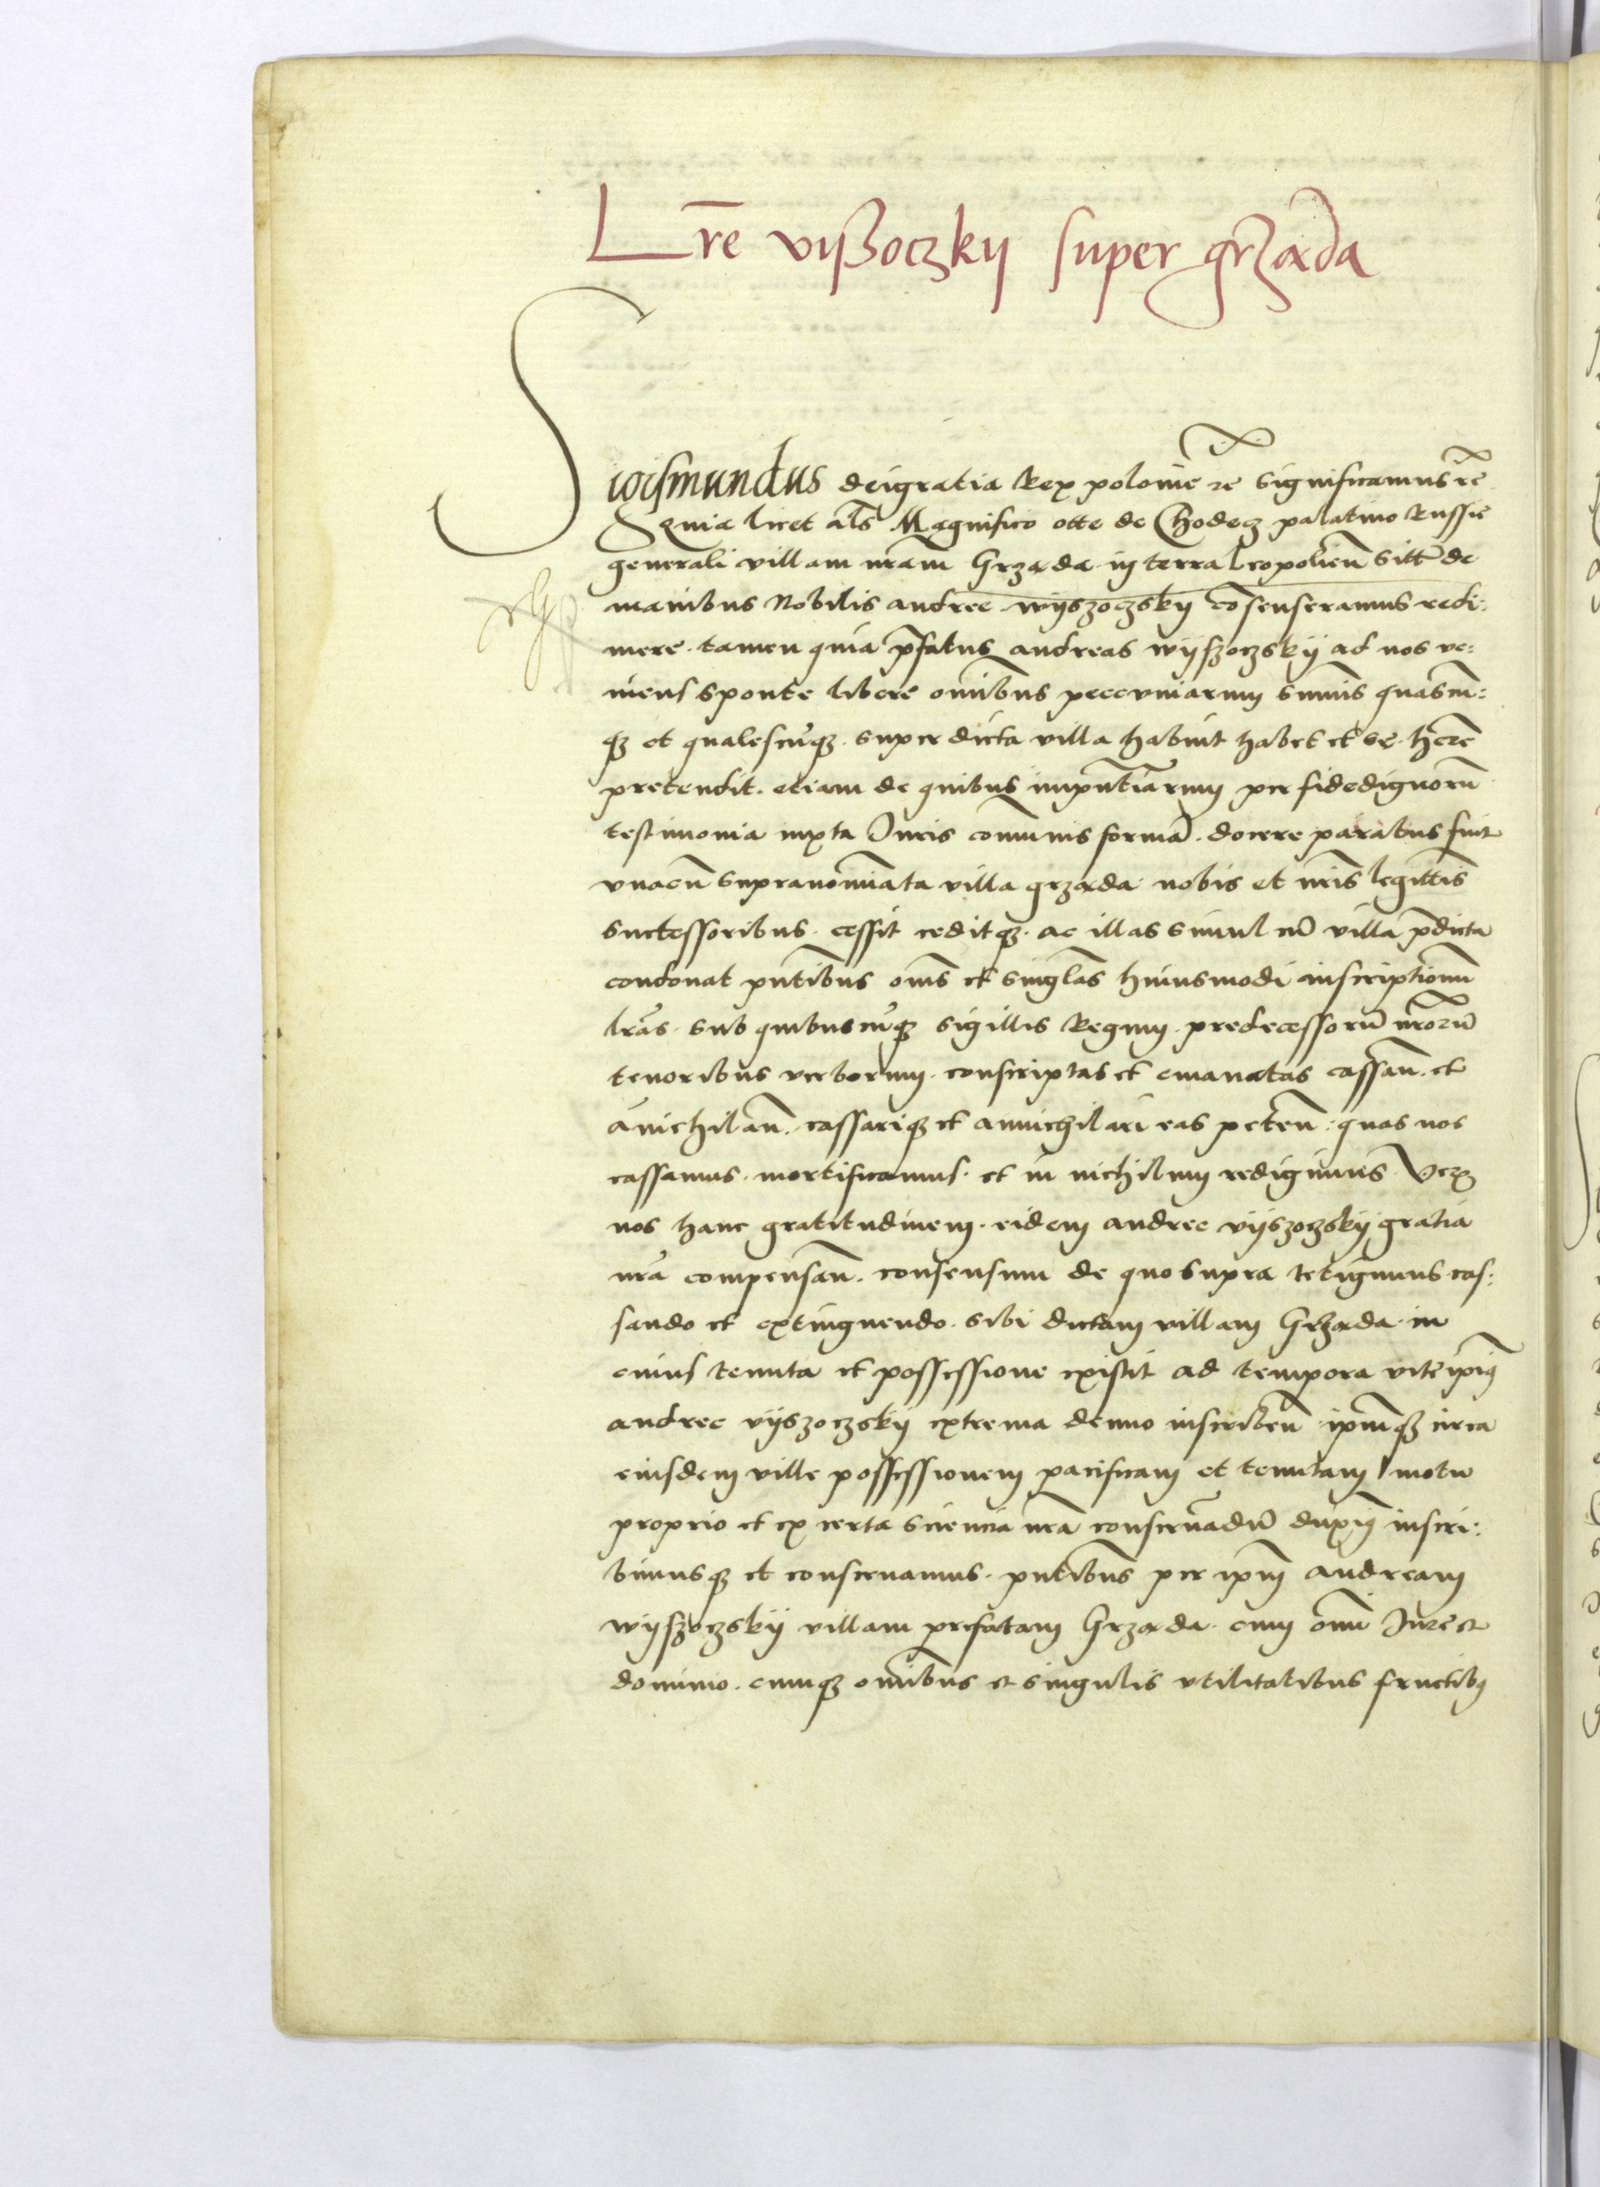 Lr̃e vißoczkij super grzada
Sigismundus dei gratia Rex polonie ꝛc̃ Significamus ꝛc̃
Quia licet al̃s Magnifico otte de Chodecz palatino Russie
generali villam nr̃am Grzada in terra Leopolien̄ sitt̃ de
manibus Nobilis andree wijszoczskij cōsenseramus redi:
mere. tamen quia p̃fatus andreas wijszoczskij ad nos ve:
niens sponte libere om̄ibus peccuniarum sum̄is quascū:
qȝ et qualescūqȝ. super dicta villa habuit habet et se. her̃e
pretendit. etiam de quibus imp̄ntiarum per fidedignorū
testimonia iuxta Juris com̄unis formā. docere paratus fuit
vnacū supranomīata villa grzada nobis et nr̃is legittīs
suctessoribus. cessit ceditqȝ. ac illas simul cū villa p̃dicta
condonat p̄ntibus om̄s et singl̃as huiusmodi inscriptionū
lr̃as. sub quibuscūqȝ sigillis Regum. predecessorū nr̃orū
tenoribus verborum. conscriptas et emanatas cassan̄. et
anichilan̄. cassariqȝ et annichilari eas peten̄: quas nos
cassamus. mortificamus. et in nichilum redigimus. Verū
nos hanc gratitudinem. eidem andree vijszoczskij gratia
nr̃a compensan̄. consensum de quo supra tetigimus cas:
sando et extinguendo. sibi dictam villam Grzada in
cuius tenuta et possessione existit ad tempora vite ip̄iꝰ
andree vijszoczskij extrema denuo inscriben̄ ip̄mqȝ circa
eiusdem ville possessionem pacificam et tenutam motu
proprio et ex certa sciencia nr̃a conseruādū duxim9 inscri:
bimusqȝ et conseruamus. p̄ntibus per ip̄m andream
wijszoczskij villam prefatam Grzada. cum om̄i Jure et
dominio. cumqȝ om̄ibus et singulis vtilitatibus fructibꝰ